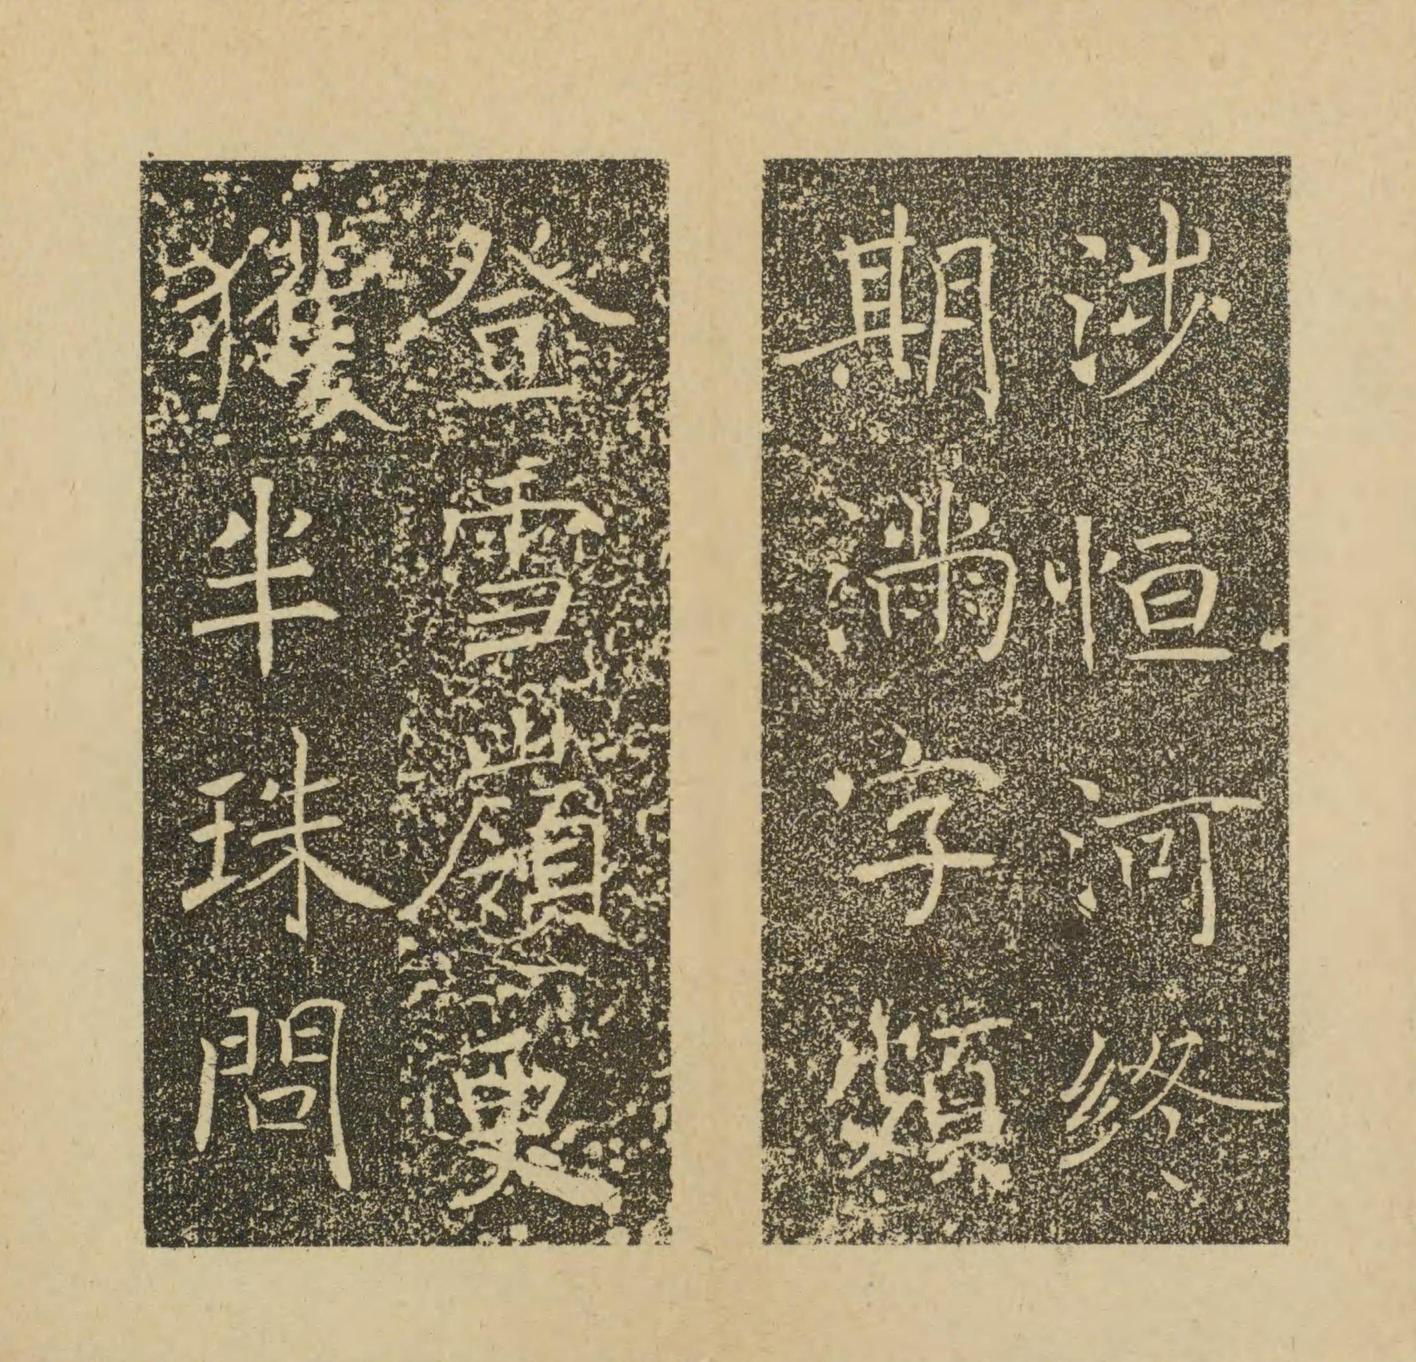 涉恒河終
期滿字頻
登雪嶺更
獲半珠問